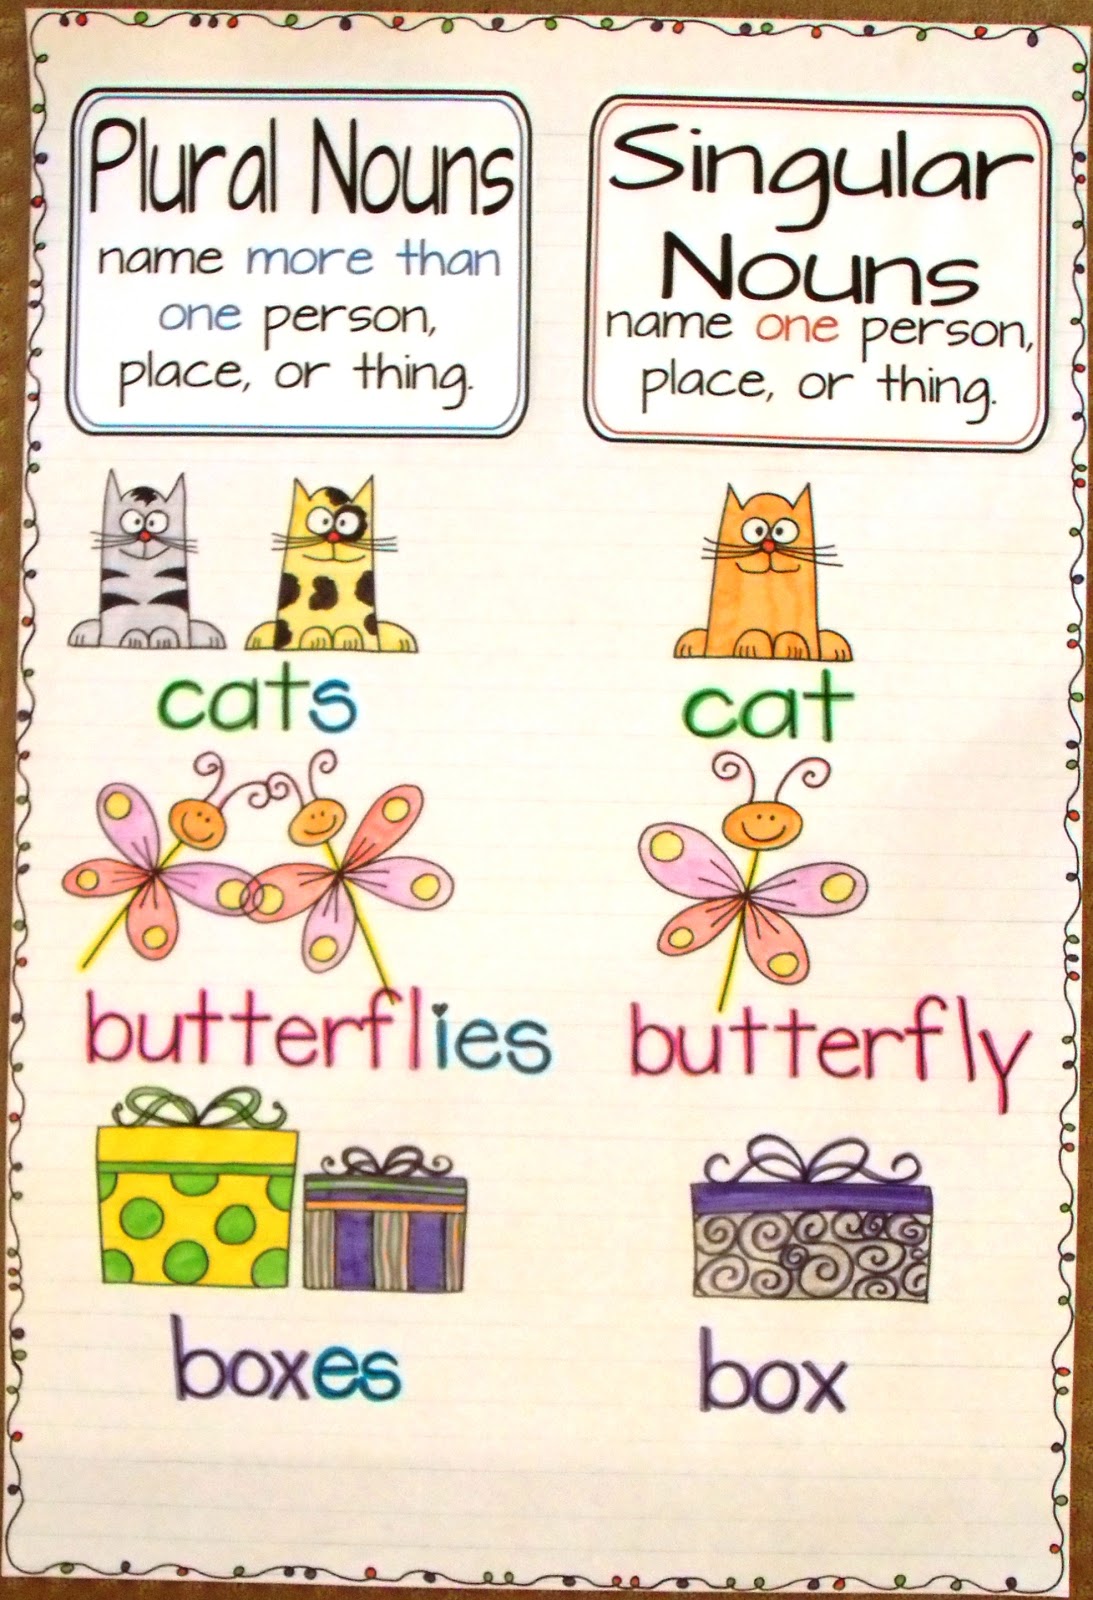 Plural Nouns
name more than
one person,
place, or thing.
Singular
Nouns
name one person,
place, or thing.
cats
cat
butterflies
butterfly
boxes
box